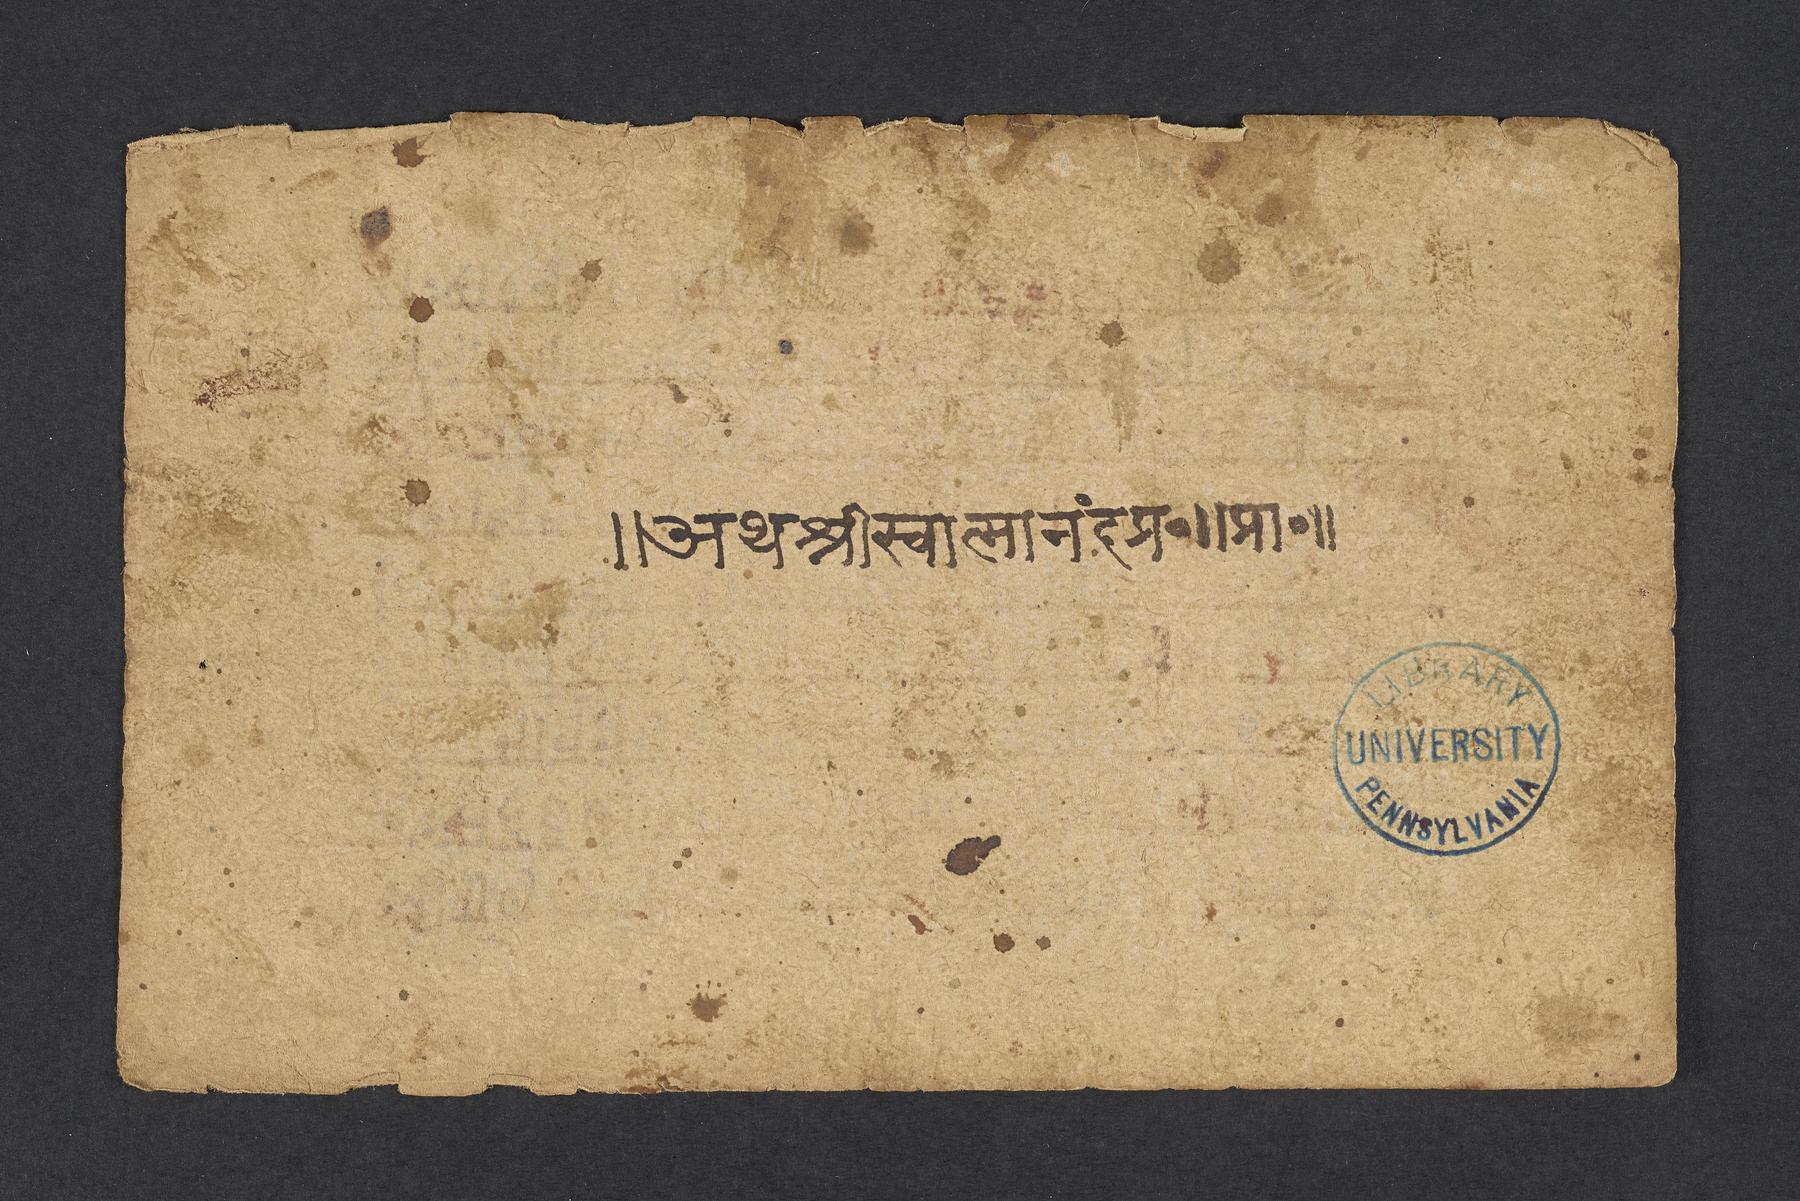 ॥अथश्रीस्वात्मानंदप्र॰॥प्रा॰॥
LIBRARY
UNIVERSITY
PENNSYLVANIA